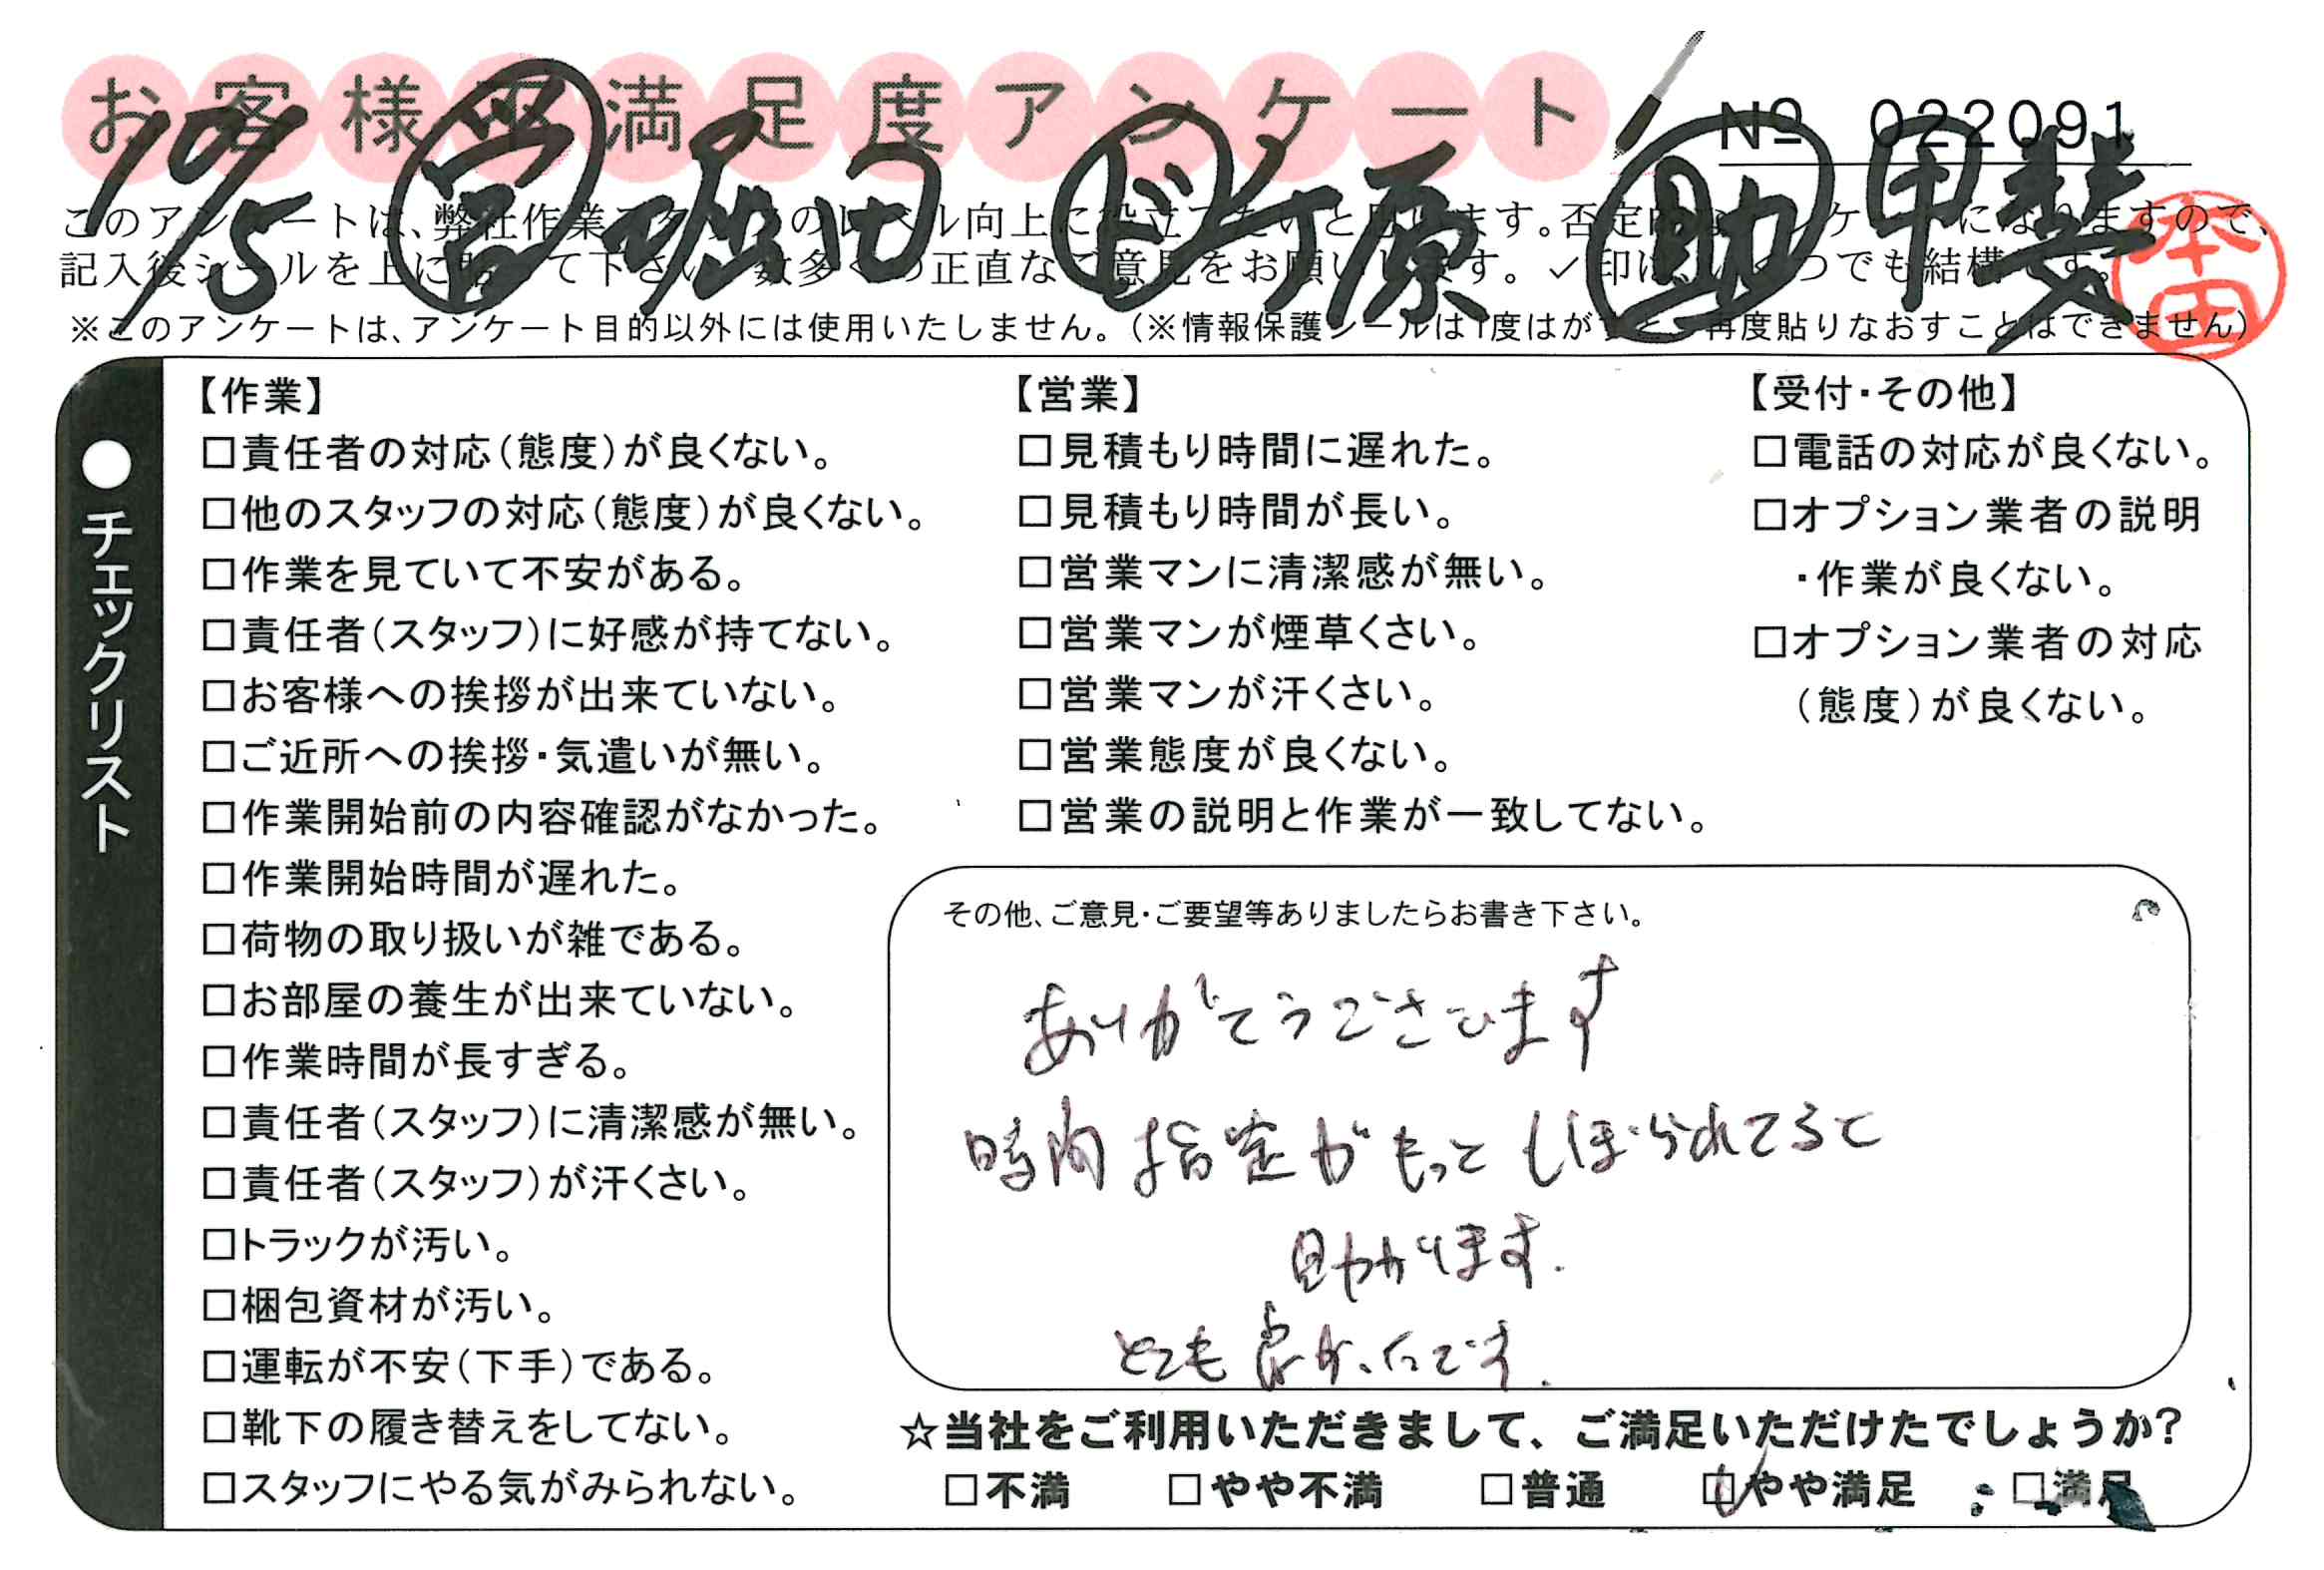 お客様不満足度アンケート
№ 022091
10/5 営 堀田 ド 竹原 助 甲斐
本田
このアンケートは、弊社作業スタッフのレベル向上に役立てたいと思います。否定的なアンケートになりますので、
記入後シールを上に貼って下さい。数多くの正直なご意見をお願いします。✓印は、いくつでも結構です。
※このアンケートは、アンケート目的以外には使用いたしません。(※情報保護シールは1度はがすと、再度貼りなおすことはできません)
●チェックリスト
【作業】
□責任者の対応(態度)が良くない。
□他のスタッフの対応(態度)が良くない。
□作業を見ていて不安がある。
□責任者(スタッフ)に好感が持てない。
□お客様への挨拶が出来ていない。
□ご近所への挨拶・気遣いが無い。
□作業開始前の内容確認がなかった。
□作業開始時間が遅れた。
□荷物の取り扱いが雑である。
□お部屋の養生が出来ていない。
□作業時間が長すぎる。
□責任者(スタッフ)に清潔感が無い。
□責任者(スタッフ)が汗くさい。
□トラックが汚い。
□梱包資材が汚い。
□運転が不安(下手)である。
□靴下の履き替えをしてない。
□スタッフにやる気がみられない。
【営業】
□見積もり時間に遅れた。
□見積もり時間が長い。
□営業マンに清潔感が無い。
□営業マンが煙草くさい。
□営業マンが汗くさい。
□営業態度が良くない。
□営業の説明と作業が一致してない。
【受付・その他】
□電話の対応が良くない。
□オプション業者の説明
・作業が良くない。
□オプション業者の対応
(態度)が良くない。
その他、ご意見・ご要望等ありましたらお書き下さい。
ありがとうございます
時間指定がもっとしぼられてると
助かります.
とても良かったです.
☆当社をご利用いただきまして、ご満足いただけたでしょうか?
□不満 □やや不満 □普通 ☑やや満足 □満足